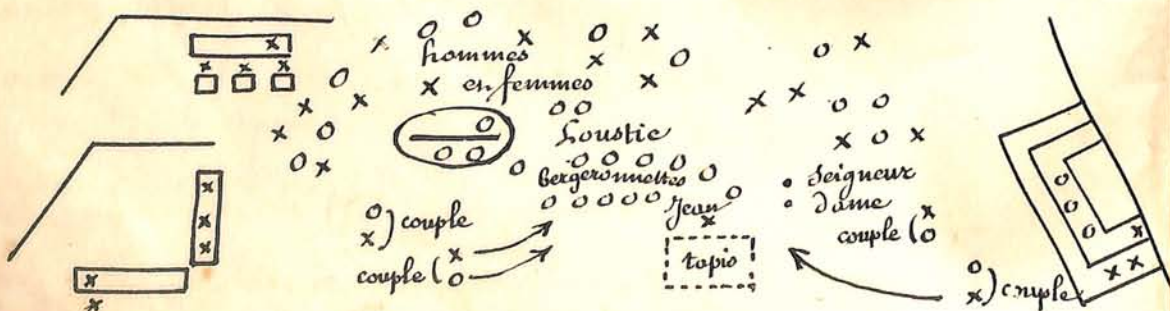 hommes
en femmes
Loustic
Bergeronnettes
Jean
Seigneur
Dame
couple
couple
couple
couple
tapis